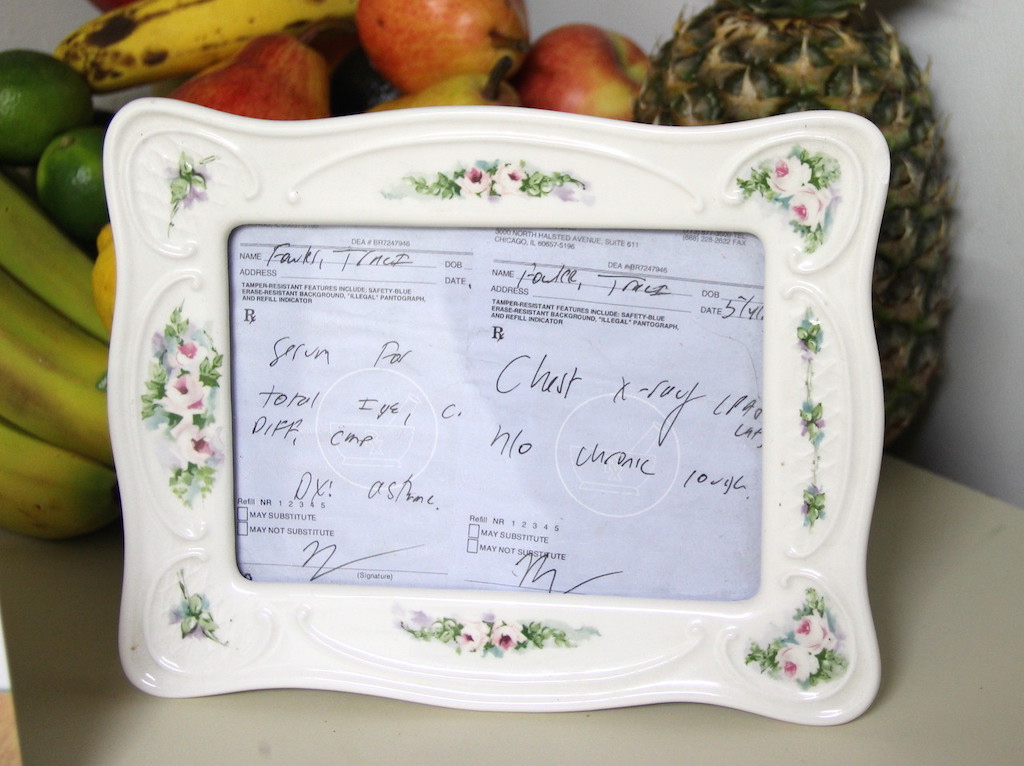 DEA # BR7247946
NAME Fowler, Traci DOB
ADDRESS DATE
TAMPER-RESISTANT FEATURES INCLUDE: SAFETY-BLUE
ERASE-RESISTANT BACKGROUND, "ILLEGAL" PANTOGRAPH,
AND REFILL INDICATOR
Rx
Serum For
total IgE, C.
DIFF, cmp
DX: asthma.
Refill NR 1 2 3 4 5
MAY SUBSTITUTE
MAY NOT SUBSTITUTE
(Signature)
3000 NORTH HALSTED AVENUE, SUITE 611
CHICAGO, IL 60657-5196
(888) 228-2622 FAX
DEA # BR7247946
NAME Fowler, Traci DOB
ADDRESS DATE
TAMPER-RESISTANT FEATURES INCLUDE: SAFETY-BLUE
ERASE-RESISTANT BACKGROUND, "ILLEGAL" PANTOGRAPH,
AND REFILL INDICATOR
Rx
Chest x-ray
h/o chronic cough.
Refill NR 1 2 3 4 5
MAY SUBSTITUTE
MAY NOT SUBSTITUTE